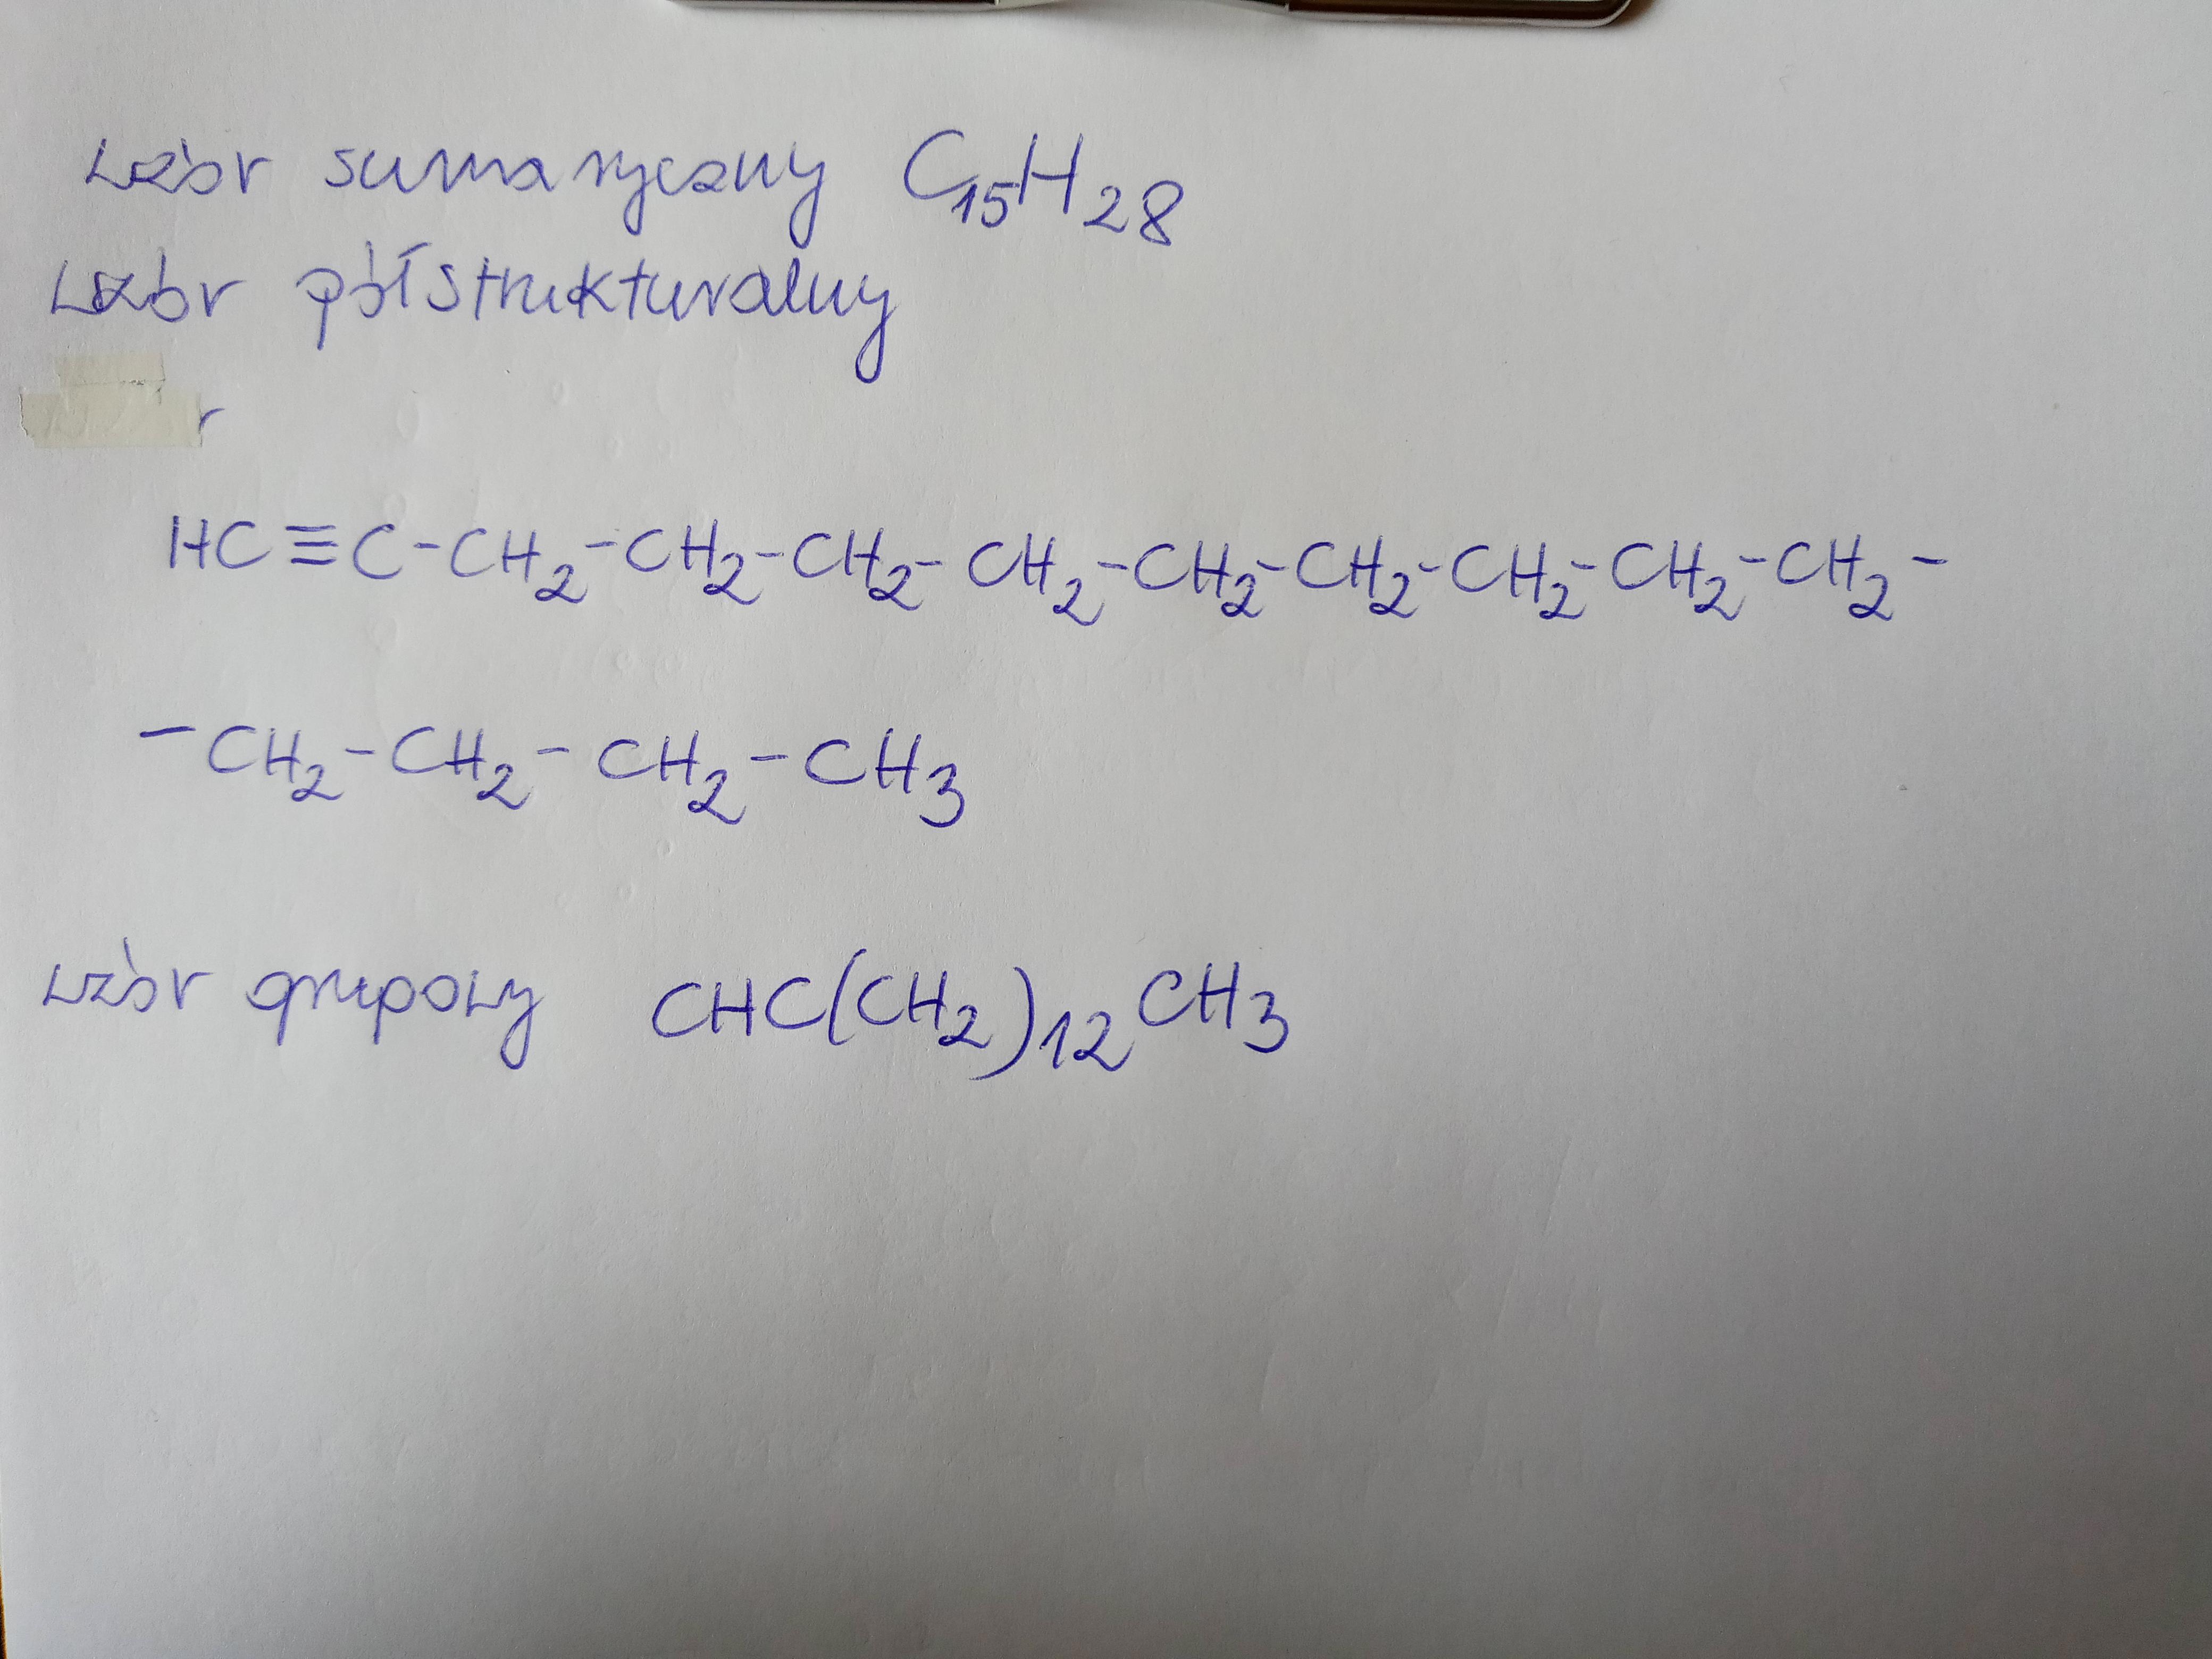 wzór sumaryczny C₁₅H₂₈
wzór półstrukturalny
r
HC≡C-CH₂-CH₂-CH₂-CH₂-CH₂-CH₂-CH₂-CH₂-CH₂-
-CH₂-CH₂-CH₂-CH₃
wzór grupowy CHC(CH₂)₁₂CH₃